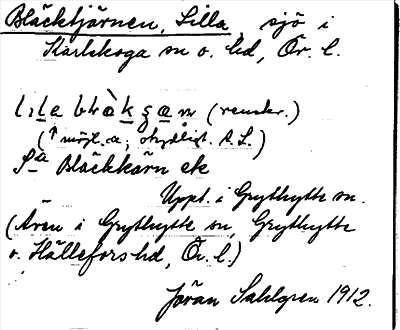 Bläcktjärnen, Lilla, sjö i
Karlskoga sn o. hd, Ör. l.
(renskr.)
(↑ möjl. a; otydligt. A.L.)
Sa Bläckkärn ek
Uppt. i Grythytte sn.
(Även i Grythytte sn, Grythytte
o. Hällefors hd, Ör. l.)
Jöran Sahlgren 1912.